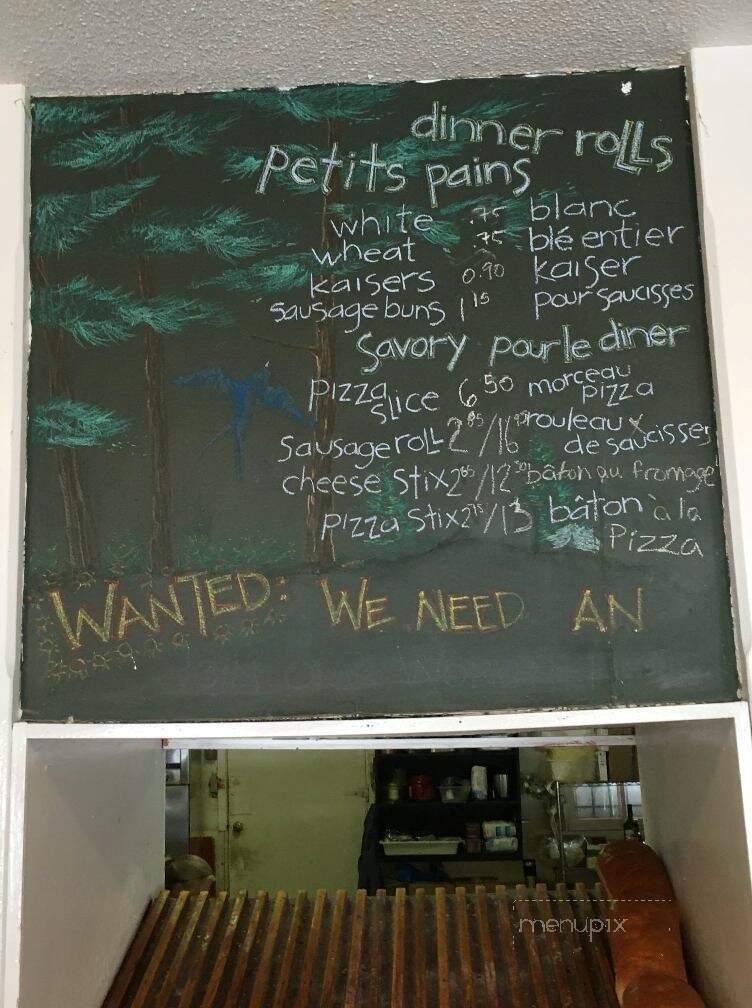 dinner rolls
petits pains
white .75 blanc
wheat .75 blé entier
kaisers 0.90 kaiser
sausage buns 1 15 pour saucisses
savory pour le diner
pizza slice 6 50 morceau pizza
sausage roll 2 85/16 rouleaux de saucisses
cheese stix 2 65/12 50 bâton au fromage
pizza stix 2 75/13 bâton à la pizza
WANTED: WE NEED AN
menupix